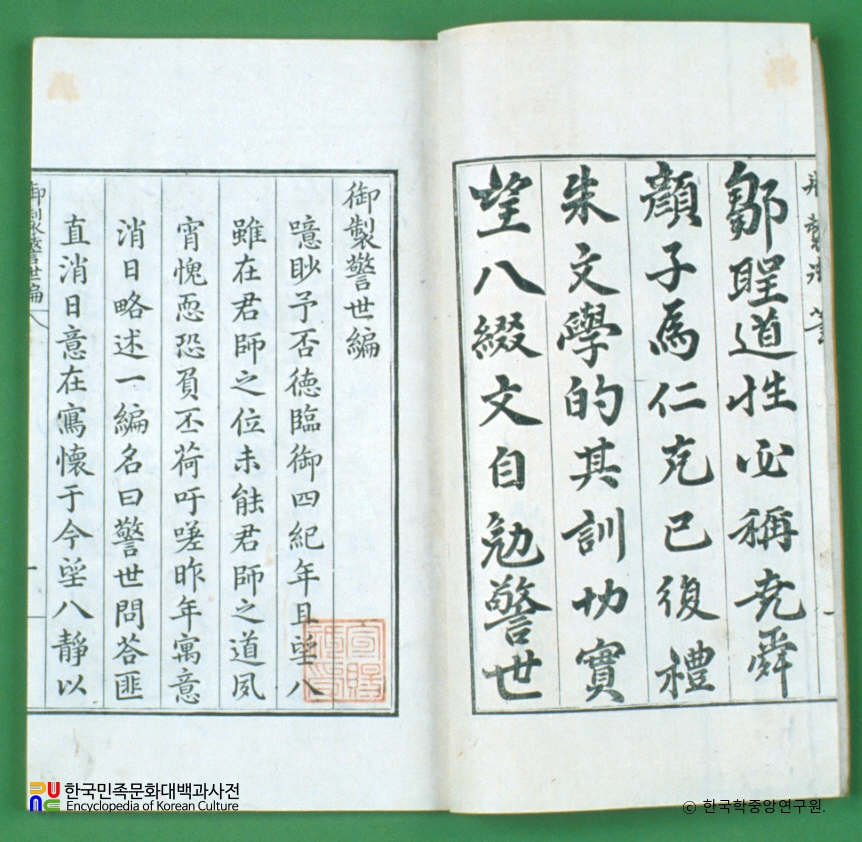 鄒聖道性必稱堯舜
顔子爲仁克己復禮
朱文學的其訓切實
望八綴文自勉警世
御製警世編
噫眇予否德臨御四紀年且望八
雖在君師之位未能君師之道夙
宵愧恧恐負丕荷吁嗟昨年寓意
消日略述一編名曰警世問答匪
直消日意在寓懷于今望八靜以
御製警世編
한국민족문화대백과사전
Encyclopedia of Korean Culture
© 한국학중앙연구원.